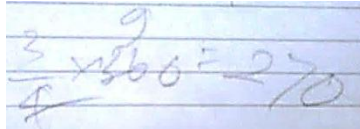 9
3/4 × 360 = 270